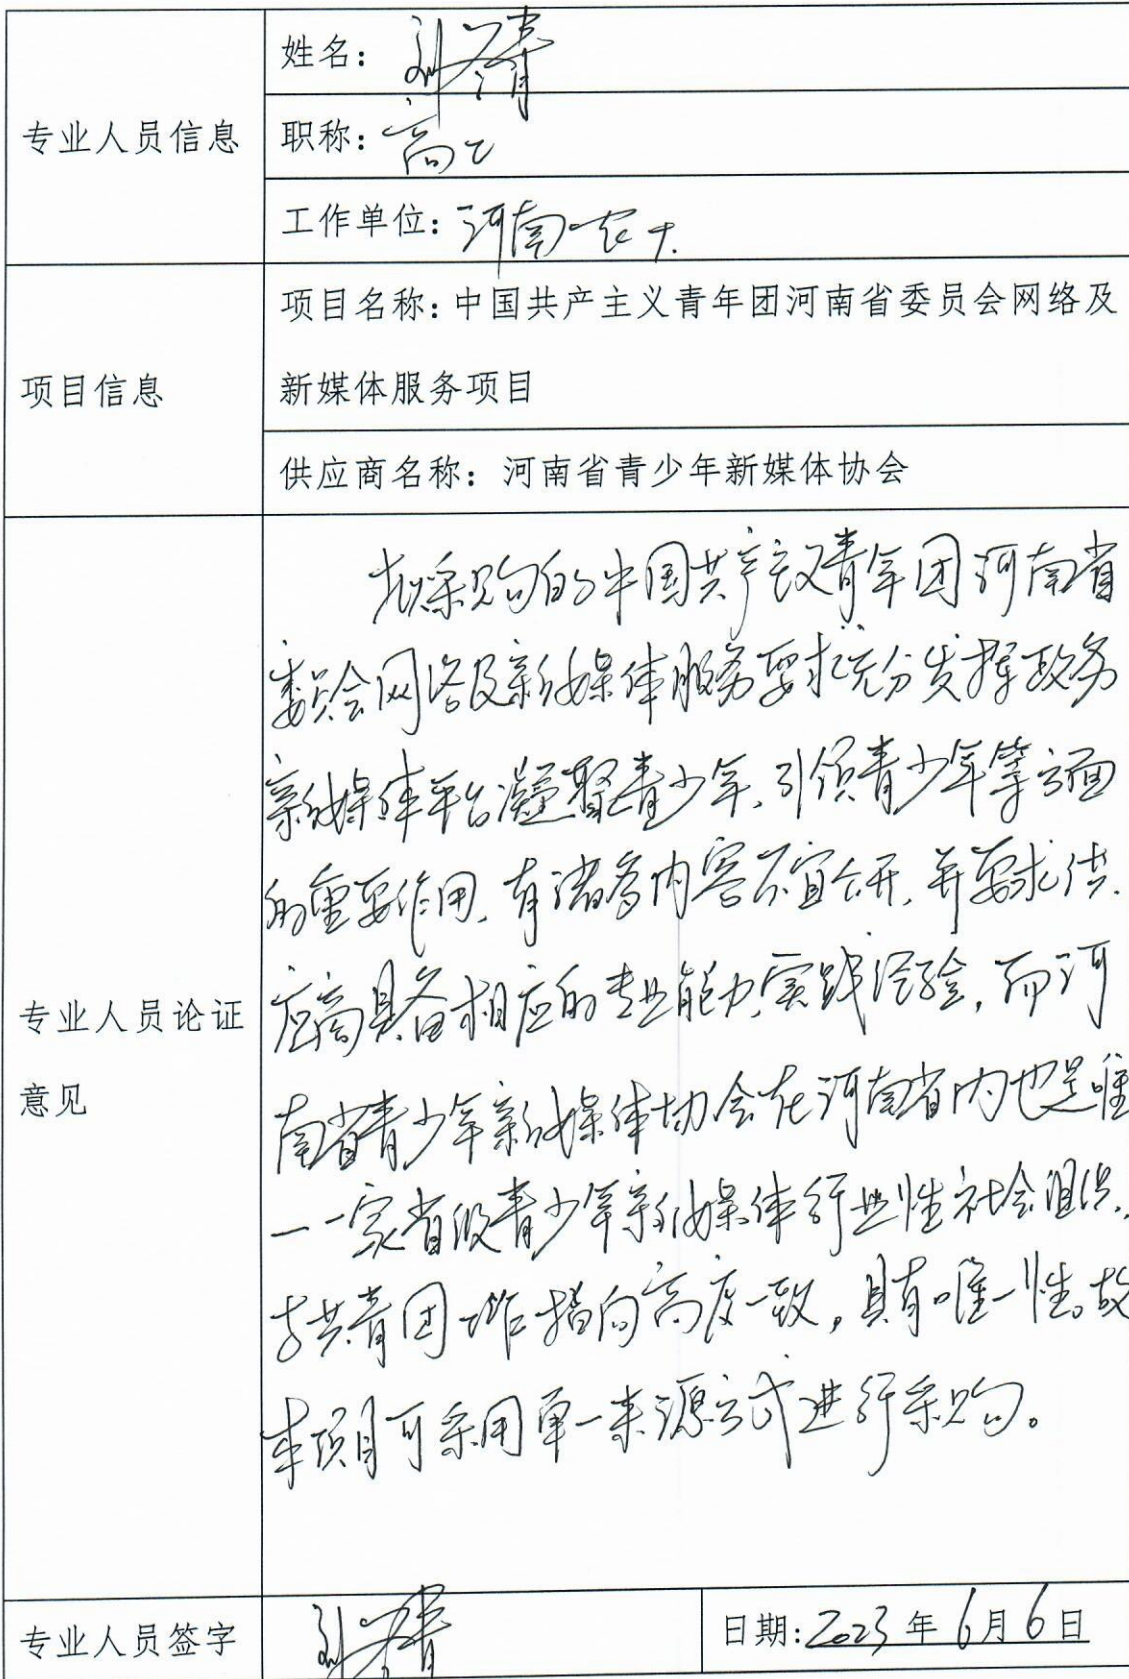 姓名：刘
专业人员信息
职称：高工
工作单位：河南农大.
项目信息
项目名称：中国共产主义青年团河南省委员会网络及
新媒体服务项目
供应商名称：河南省青少年新媒体协会
专业人员论证
意见
拟采购的中国共产主义青年团河南省
委员会网络及新媒体服务要求充分发挥政务
新媒体平台凝聚青少年、引领青少年等方面
的重要作用，有诸多内容不宜公开，并要求供
应商具备相应的专业能力，实践经验，而河
南省青少年新媒体协会在河南省内也是唯
一一家省级青少年新媒体行业性社会组织，
与共青团工作指向高度一致，具有唯一性。故
本项目可采用单一来源方式进行采购。
专业人员签字
刘
日期：2023年6月6日